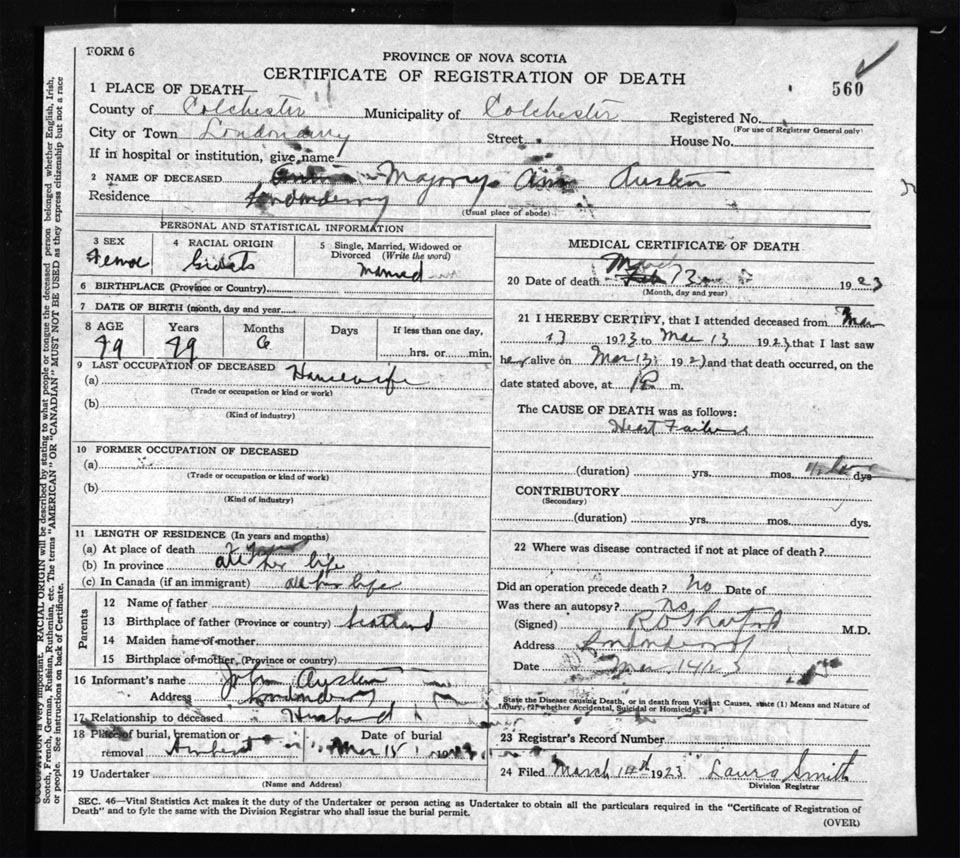 FORM 6
PROVINCE OF NOVA SCOTIA
CERTIFICATE OF REGISTRATION OF DEATH
560
1 PLACE OF DEATH—
County of Colchester Municipality of Colchester Registered No.
(For use of Registrar General only)
City or Town Londonderry Street House No.
If in hospital or institution, give name
2 NAME OF DECEASED Ann Austin
Residence Londonderry
(Usual place of abode)
PERSONAL AND STATISTICAL INFORMATION
3 SEX 4 RACIAL ORIGIN 5 Single, Married, Widowed or Divorced (Write the word)
Married
6 BIRTHPLACE (Province or Country)
7 DATE OF BIRTH (month, day and year)
8 AGE Years Months Days If less than one day,
hrs. or min.
9 LAST OCCUPATION OF DECEASED
(a) Housewife
(Trade or occupation or kind or work)
(b)
(Kind of industry)
10 FORMER OCCUPATION OF DECEASED
(a)
(Trade or occupation or kind of work)
(b)
(Kind of industry)
11 LENGTH OF RESIDENCE (In years and months)
(a) At place of death
(b) In province all her life
(c) In Canada (if an immigrant) all her life
Parents
12 Name of father
13 Birthplace of father (Province or country) Scotland
14 Maiden name of mother
15 Birthplace of mother, (Province or country)
16 Informant's name John Austin
Address Londonderry
17 Relationship to deceased Husband
18 Place of burial, cremation or removal Date of burial
Mar 15
19 Undertaker
(Name and Address)
MEDICAL CERTIFICATE OF DEATH
20 Date of death March 1923
(Month, day and year)
21 I HEREBY CERTIFY, that I attended deceased from Mar
13 1923 to Mar 13 1923, that I last saw
her alive on Mar 13 192 and that death occurred, on the
date stated above, at m.
The CAUSE OF DEATH was as follows:
Heart Failure
(duration) yrs. mos. dys
CONTRIBUTORY
(Secondary)
(duration) yrs. mos. dys.
22 Where was disease contracted if not at place of death?
Did an operation precede death? no Date of
Was there an autopsy? no
(Signed) M.D.
Address Londonderry
Date Mar 14
State the Disease causing Death, or in death from Violent Causes, state (1) Means and Nature of
Injury, (2) whether Accidental, Suicidal or Homicidal
23 Registrar's Record Number
24 Filed March 14th 1923 Laura Smith
Division Registrar
SEC. 46—Vital Statistics Act makes it the duty of the Undertaker or person acting as Undertaker to obtain all the particulars required in the "Certificate of Registration of
Death" and to fyle the same with the Division Registrar who shall issue the burial permit.
(OVER)
OCCUPATION is very important. RACIAL ORIGIN will be described by stating to what people or tongue the deceased person belonged whether English, Irish,
Scotch, French, German, Russian, Ruthenian, etc. The terms "AMERICAN" OR "CANADIAN" MUST NOT BE USED as they express citizenship but not a race
or people. See instructions on back of Certificate.